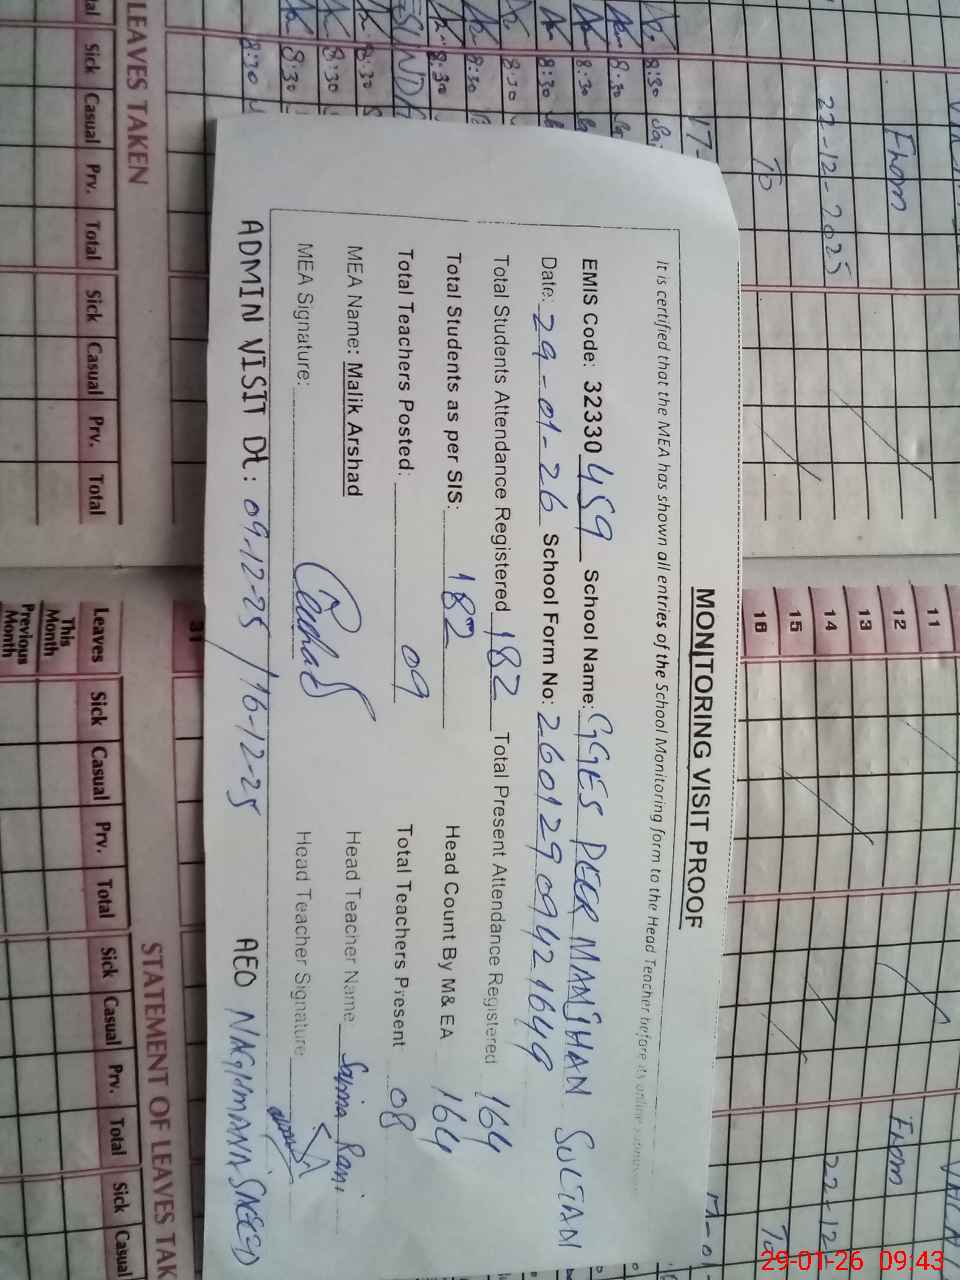 MONITORING VISIT PROOF
It is certified that the MEA has shown all entries of the School Monitoring form to the Head Teacher before its online
EMIS Code: 32330459 School Name: GGES PEER MANJHAN SULTAN
Date: 29-01-26 School Form No: 26012909421649
Total Students Attendance Registered 182 Total Present Attendance Registered 164
Total Students as per SIS: 182 Head Count By M& EA 164
Total Teachers Posted: 09 Total Teachers Present 08
MEA Name: Malik Arshad Head Teacher Name Saima Rani
MEA Signature: Head Teacher Signature
ADMIN VISIT Dt: 09-12-25 / 16-12-25 AEO
LEAVES TAKEN
Sick Casual Prv. Total Sick Casual Prv. Total
STATEMENT OF LEAVES TAK
Leaves Sick Casual Prv. Total Sick Casual Prv. Total Sick Casual
This Month
Previous Month
11
12
13
14
15
16
31
From
22-12-2025
To
From
22-12
To
17-
8:30
8:30
8:30
8:30
8:30
8:30
8:30
8:30
8:30
8:30
8:30
29-01-26 09:43